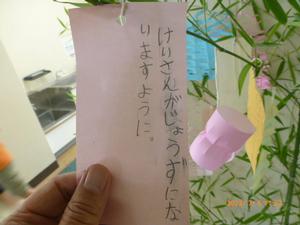 けいさんがじょうずにな
りますように。